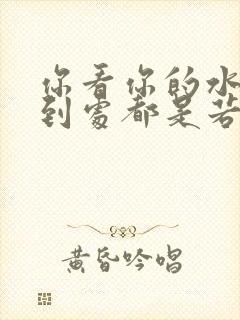 你看你的水
到處都是若
黄昏吟唱